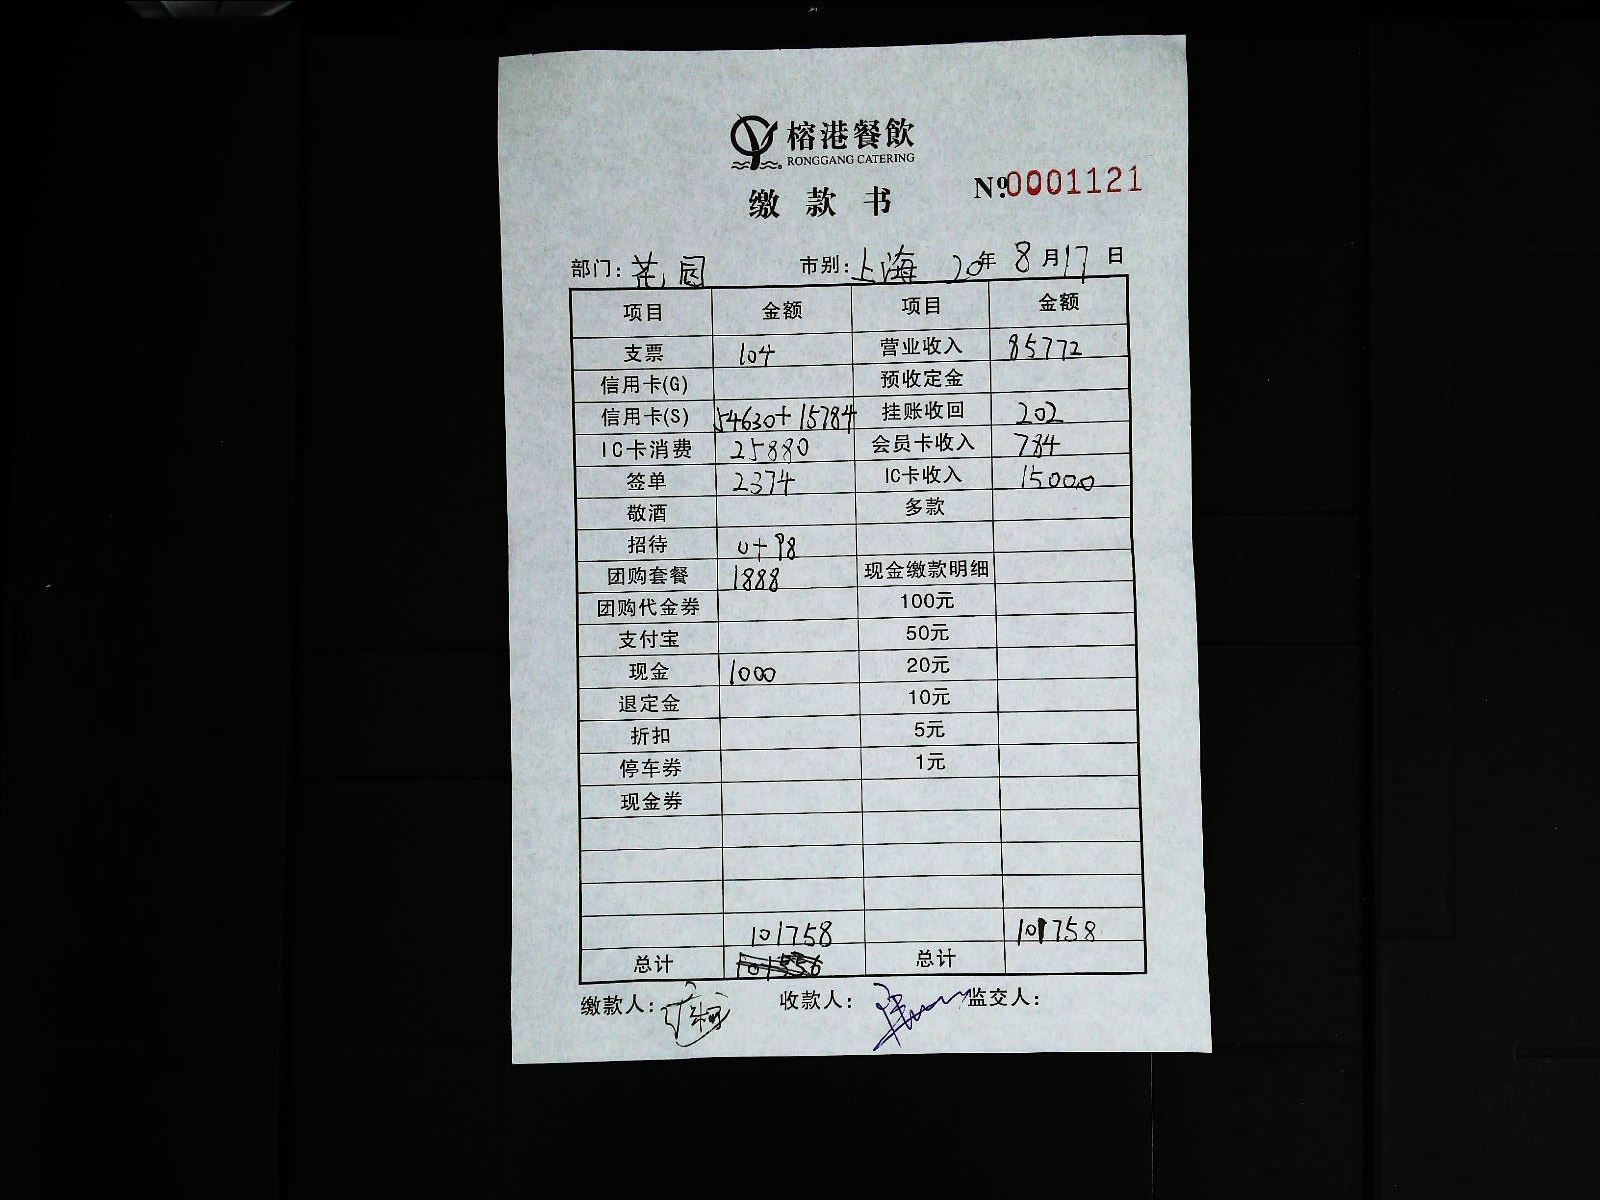 榕港餐飲
RONGGANG CATERING
缴款书 №0001121
部门: 花园 市别: 上海 20年 8月17日
项目 金额 项目 金额
支票 104 营业收入 85772
信用卡(G) 预收定金
信用卡(S) 54630+15784 挂账收回 202
IC卡消费 25880 会员卡收入 784
签单 2374 IC卡收入 15000
敬酒 多款
招待 0+98
团购套餐 1888 现金缴款明细
团购代金券 100元
支付宝 50元
现金 1000 20元
退定金 10元
折扣 5元
停车券 1元
现金券
101758 101758
总计 101556 总计
缴款人: 收款人: 监交人: